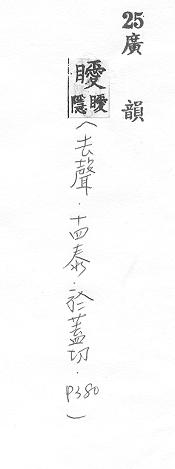 25廣韻
瞹瞹隱(去聲.十四泰.於蓋切.P380)